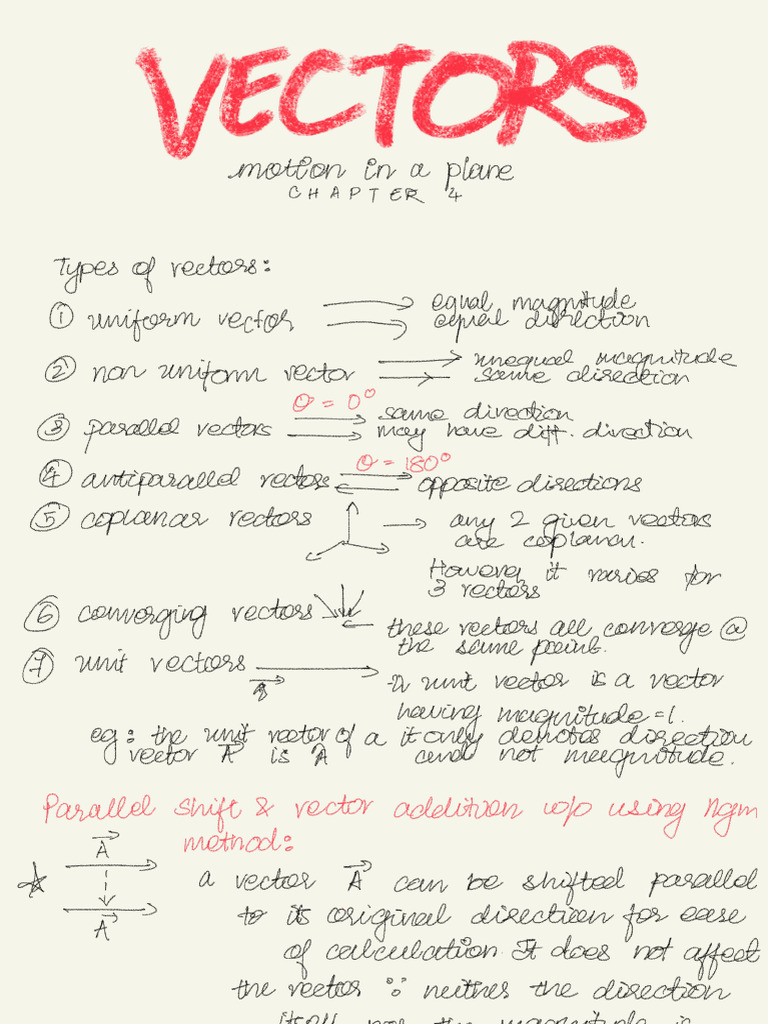 VECTORS
motion in a plane
CHAPTER 4
Types of vectors:
① uniform vector → equal magnitude
→ equal direction
② non uniform vector → unequal magnitude
→ same direction
θ = 0°
③ parallel vectors → same direction
→ may have diff. direction
θ = 180°
④ antiparallel vectors opposite directions
⑤ coplanar vectors → any 2 given vectors
are coplanar.
However it varies for
3 vectors
⑥ converging vectors ← these vectors all converge @
the same point.
⑦ unit vectors → A unit vector is a vector
having magnitude = 1.
eg: the unit vector of a it only denotes direction
vector A is Â and not magnitude.
Parallel shift & vector addition w/o using llgm
method:
A
a vector A can be shifted parallel
to its original direction for ease
A
of calculation. It does not affect
the vector ∵ neither the direction
itself nor the magnitude is